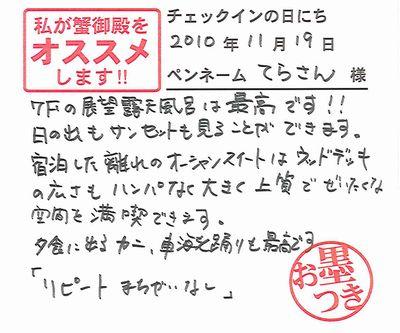 私が蟹御殿を
オススメ
します!!
チェックインの日にち
2010年11月19日
ペンネーム てらさん 様
7Fの展望露天風呂は最高です!!
日の出もサンセットも見ることができます。
宿泊した離れのオーシャンスイートはウッドデッキ
の広さもハンパなく大きく上質でぜいたくな
空間を満喫できます。
夕食に出るカニ、車海老踊りも最高です
「リピートまちがいなし」
お墨つき